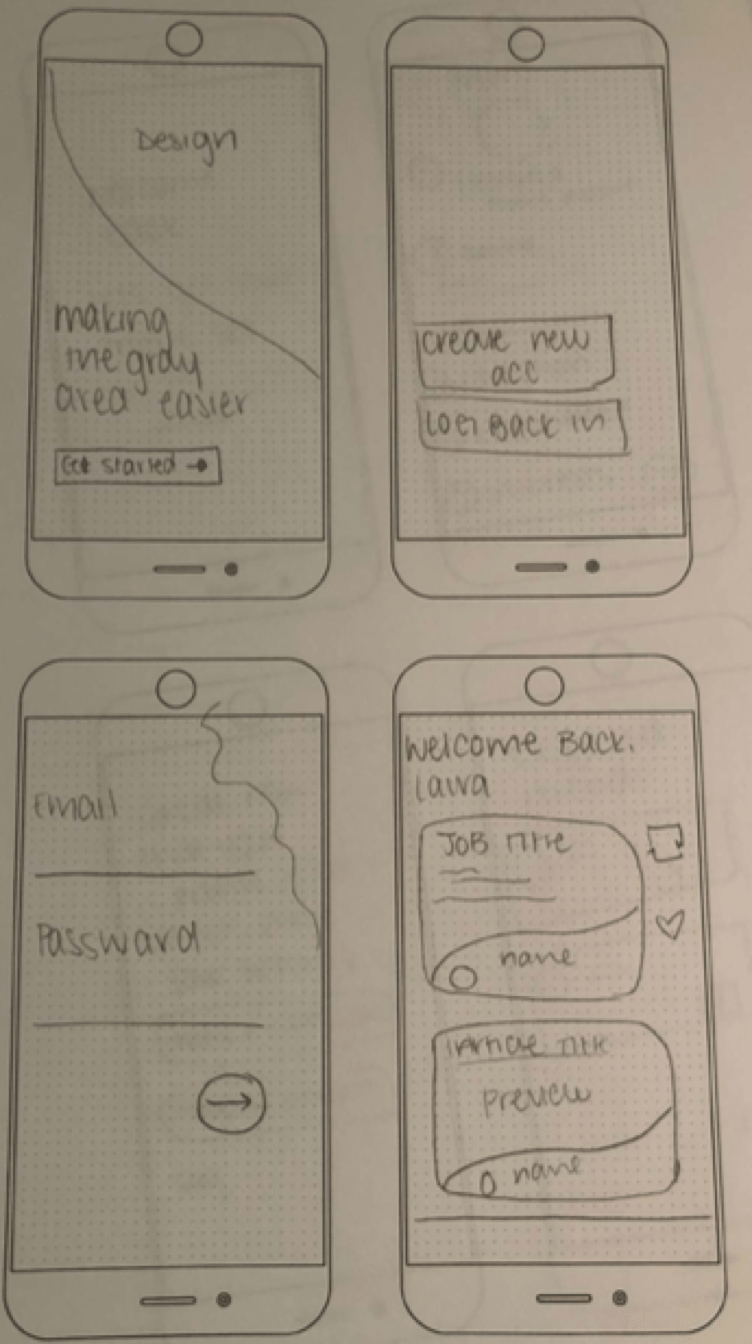 Design
making
the gray
area easier
Get started →
create new
acc
LOG BACK IN
Email
Password
Welcome Back,
JOB TITLE
name
Article Title
Preview
name